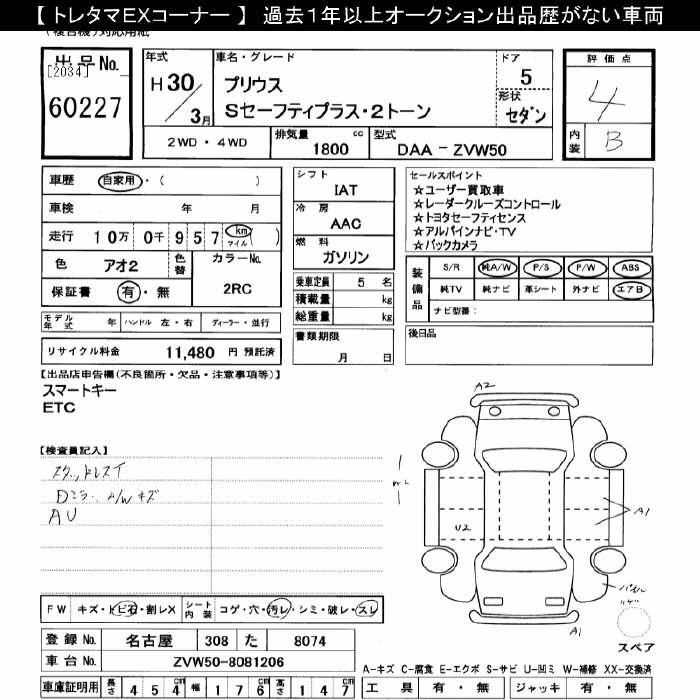 【 トレタマEXコーナー 】 過去1年以上オークション出品歴がない車両
(複合機)対応用紙
出品No.
[2034]
60227
年式
H 30 / 3月
車名・グレード
プリウス
Sセーフティプラス・2トーン
ドア
5
形状
セダン
評価点
4
内装
B
2WD ・ 4WD
排気量 cc
1800
型式
DAA − ZVW50
車歴 自家用・( )
車検 年 月
走行 10万 0千 957 km マイル ( )
色 アオ2
色替
カラーNo.
2RC
保証書 有・無
モデル年式 年 ハンドル 左・右 ディーラー・並行
リサイクル料金 11,480 円 預託済
シフト
IAT
冷房
AAC
燃料
ガソリン
乗車定員 5 名
積載量 kg
総重量 kg
書類期限
月 日
セールスポイント
☆ユーザー買取車
☆レーダークルーズコントロール
☆トヨタセーフティセンス
☆アルパインナビ・TV
☆バックカメラ
装備品
S/R 純A/W P/S P/W ABS
純TV 純ナビ 革シート 外ナビ エアB
ナビ型番:
後日品
【出品店申告欄(不良箇所・欠品・注意事項等)】
スマートキー
ETC
【検査員記入】
Dミラー A/W キズ
AU
A2
U2
A1
A1
スペア
FW キズ・トビ石・割レX
シート内装 コゲ・穴・汚レ・シミ・破レ・スレ
登録No. 名古屋 308 た 8074
車台No. ZVW50-8081206
車庫証明用 長さ 454 cm 幅 176 cm 高さ 147 cm
A-キズ C-腐食 E-エクボ S-サビ U-凹ミ W-補修 XX-交換済
工具 有・無 ジャッキ 有・無